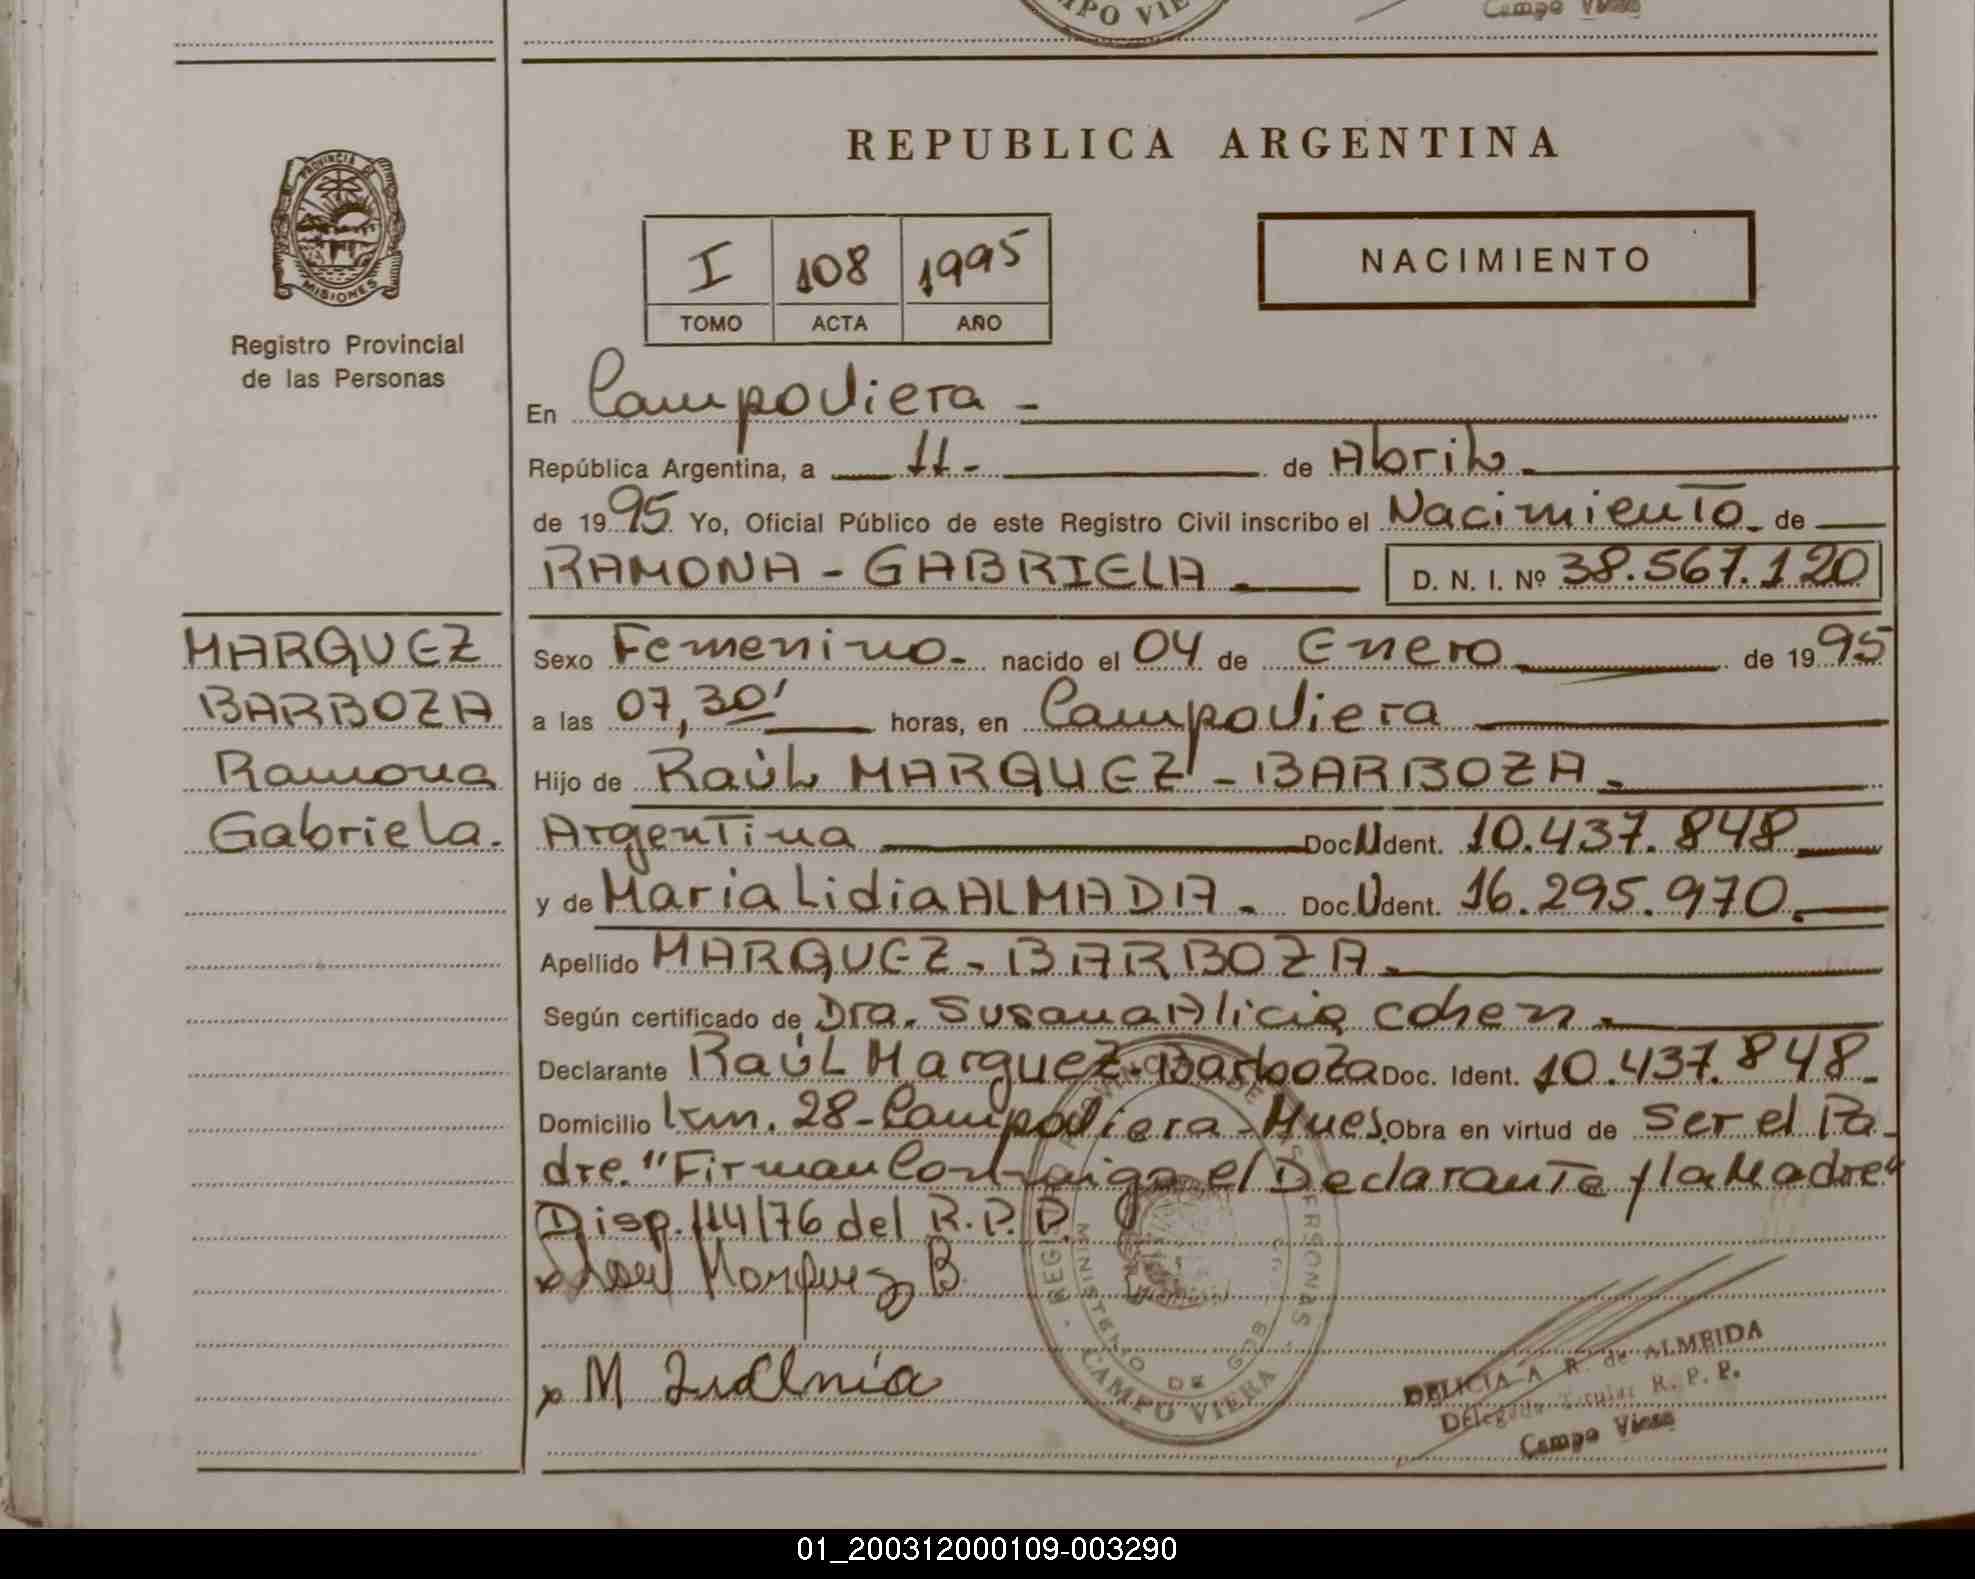 CAMPO VIE
Campo Viera
REPUBLICA ARGENTINA
PROVINCIA DE
MISIONES
Registro Provincial
de las Personas
I 108 1995
TOMO ACTA AÑO
NACIMIENTO
En Campo Viera -
República Argentina, a 11- de Abril.
de 1995. Yo, Oficial Público de este Registro Civil inscribo el Nacimiento. de
RAMONA - GABRIELA. D. N. I. Nº 38.567.120
MARQUEZ
BARBOZA
Ramona
Gabriela.
Sexo Femenino. nacido el 04 de Enero de 1995
a las 07,30' horas, en Campo Viera
Hijo de Raúl MARQUEZ - BARBOZA.
Argentina Doc. Ident. 10.437.848
y de Maria Lidia ALMADA. Doc. Ident. 16.295.970.
Apellido MARQUEZ - BARBOZA.
Según certificado de Dra. Susana Alicia Cohen.
Declarante Raúl Marquez - Barboza Doc. Ident. 10.437.848.
Domicilio km. 28 - Campo Viera - Mnes. Obra en virtud de Ser el Pa-
dre. "Firman Conmigo el Declarante y la Madre"
Disp. 114/76 del R.P.P.
Marquez B.
x M
MINISTERIO DE GOB
PERSONAS
CAMPO VIERA
DELICIA A R. de ALMEIDA
Delegada Titular R. P. P.
Campo Viera
01_200312000109-003290